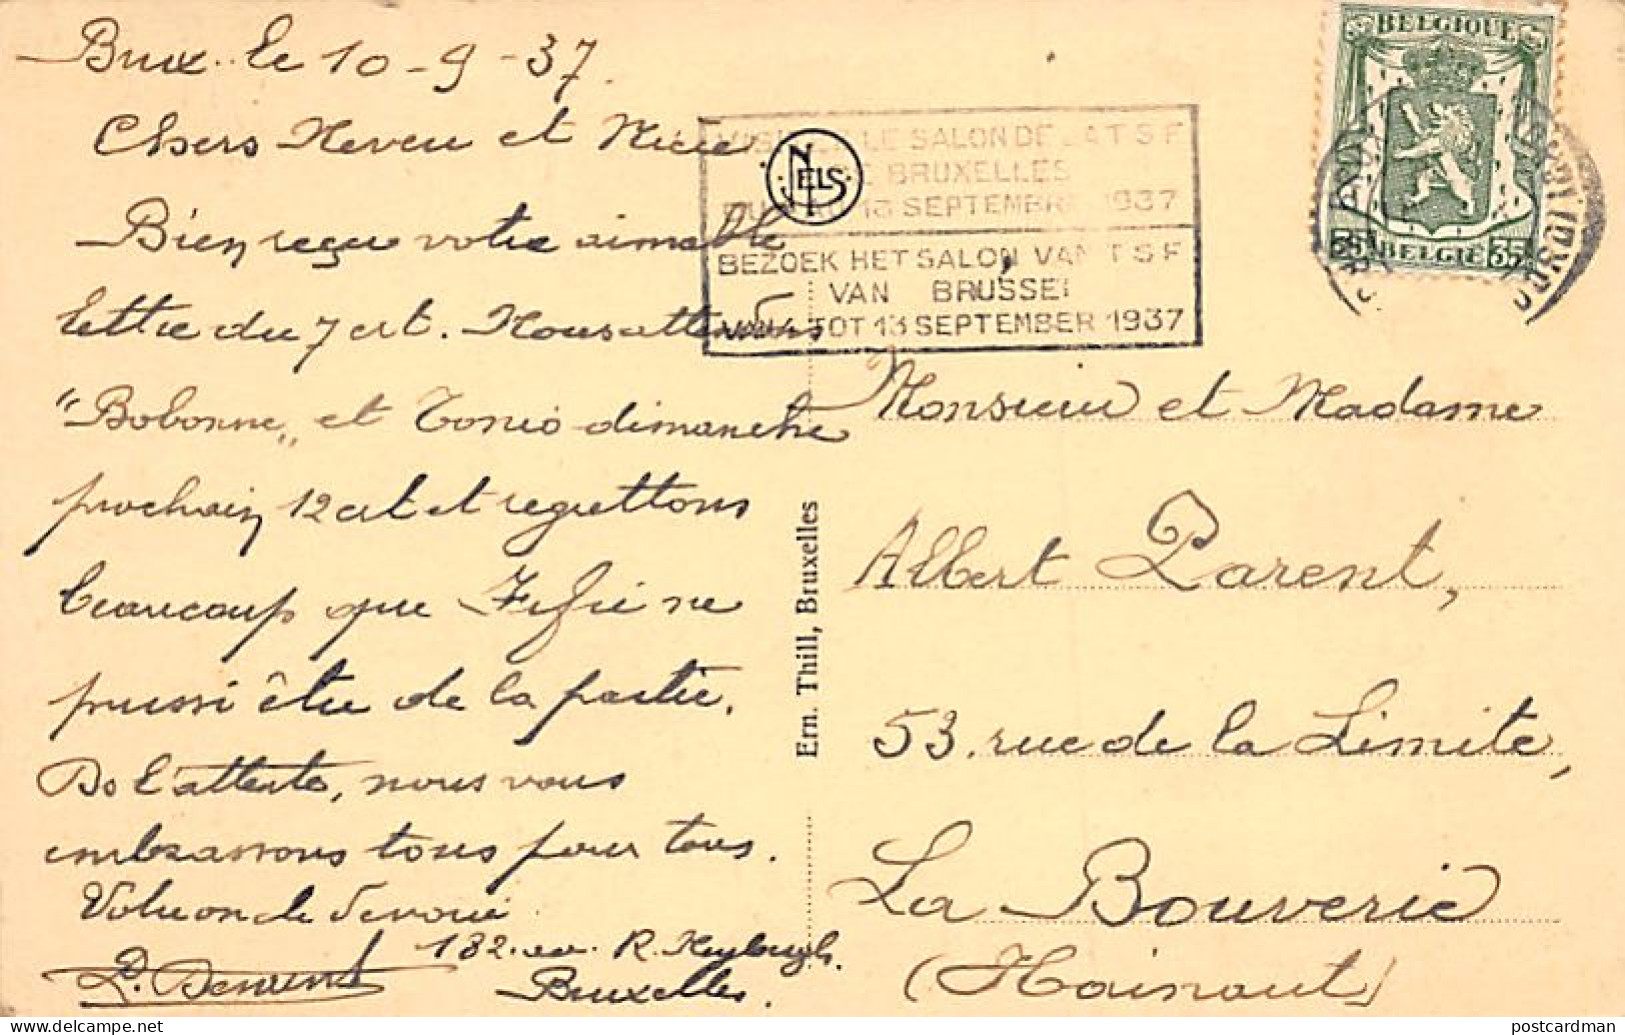 Brux. le 10-9-37.
Chers Neveu et Nièce
Bien reçu votre aimable
lettre du 7 crt. Nous attendons
"Bobonne" et Tonio dimanche
prochain 12 crt et regrettons
beaucoup que Fifi ne
puisse être de la partie.
Ds l'attente, nous vous
embrassons tous pour tous.
Votre oncle Devoué
182. av. R. Neybergh.
Bruxelles.
NELS
LE SALON DE LA T S F
DE BRUXELLES
AU 13 SEPTEMBRE 1937
BEZOEK HET SALON VAN T S F
VAN BRUSSEL
TOT 13 SEPTEMBER 1937
BELGIQUE
35 BELGIË 35
Ern. Thill, Bruxelles
Monsieur et Madame
Albert Parent,
53. rue de la Limite,
La Bouverie
(Hainaut)
postcardman